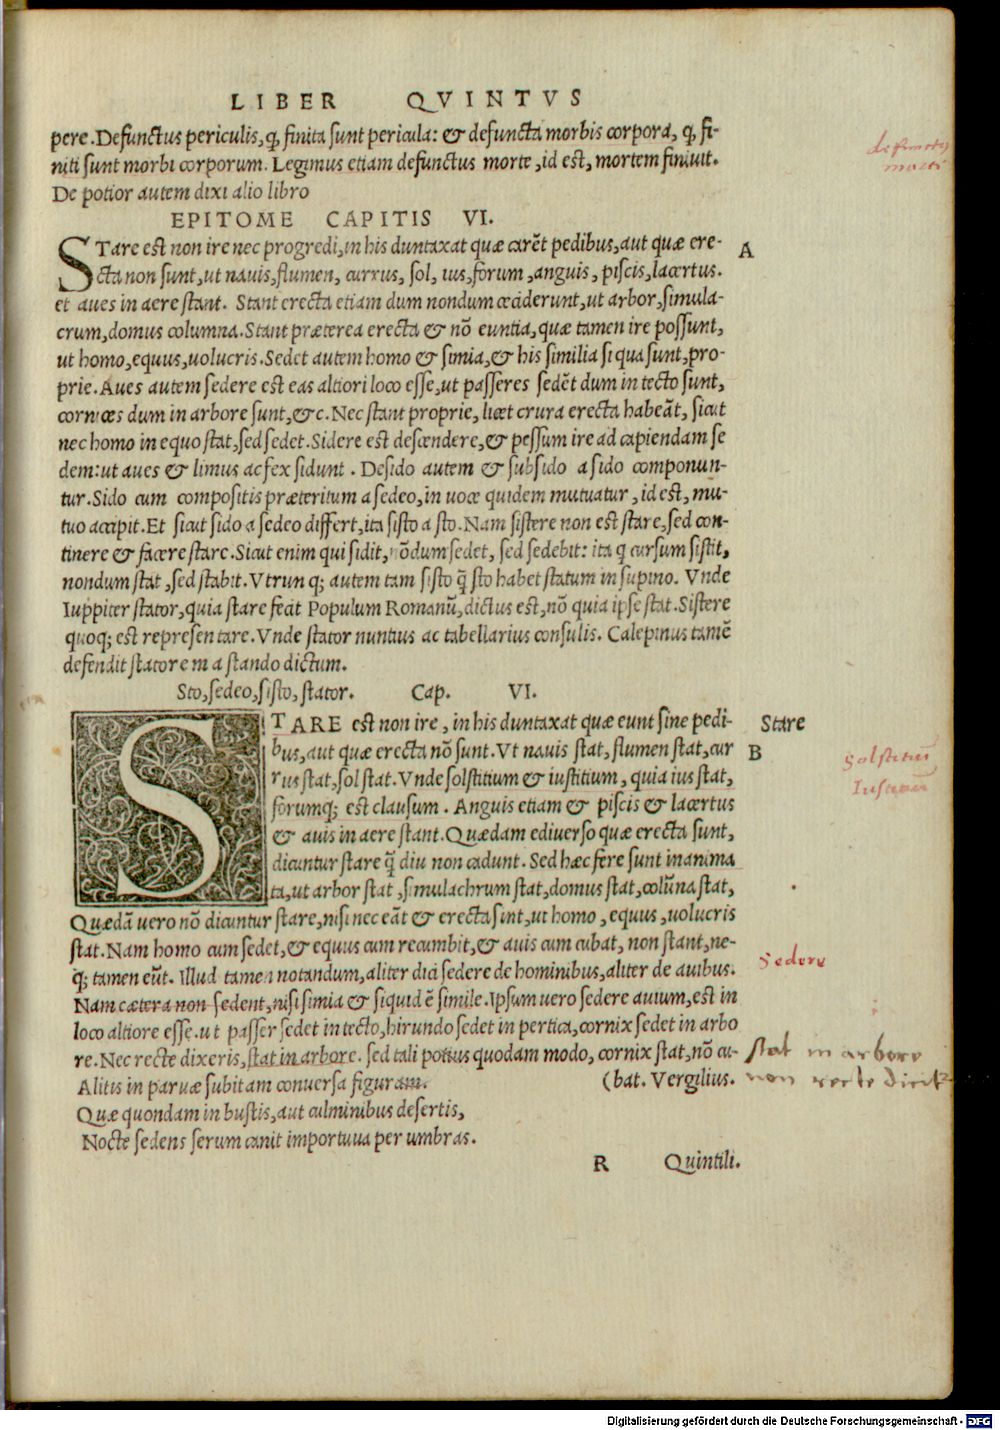 LIBER QVINTVS
pere. Defunctus periculis, q, finita sunt pericula: & defuncta morbis corpora, q, fi-
niti sunt morbi corporum. Legimus etiam defunctus morte, id est, mortem finiuit.
De potior autem dixi alio libro
EPITOME CAPITIS VI.
STare est non ire nec progredi, in his duntaxat quæ carēt pedibus, aut quæ ere-
A
cta non sunt, ut nauis, flumen, currus, sol, ius, forum, anguis, piscis, lacertus.
et aues in aere stant. Stant erecta etiam dum nondum ceciderunt, ut arbor, simula-
crum, domus columna. Stant præterea erecta & nō euntia, quæ tamen ire possunt,
ut homo, equus, uolucris. Sedet autem homo & simia, & his similia si qua sunt, pro-
prie. Aues autem sedere est eas altiori loco esse, ut passeres sedēt dum in tecto sunt,
cornices dum in arbore sunt, &c. Nec stant proprie, licet crura erecta habeāt, sicut
nec homo in equo stat, sed sedet. Sidere est descendere, & pessum ire ad capiendam se
dem: ut aues & limus ac fex sidunt. Desido autem & subsido a sido componun-
tur. Sido cum compositis præteritum a sedeo, in uoce quidem mutuatur, id est, mu-
tuo accipit. Et sicut sido a sedeo differt, ita sisto a sto. Nam sistere non est stare, sed con-
tinere & facere stare. Sicut enim qui sidit, nōdum sedet, sed sedebit: ita q cursum sistit,
nondum stat, sed stabit. Vtrunq; autem tam sisto q̄ sto habet statum in supino. Vnde
Iuppiter stator, quia stare fecit Populum Romanū, dictus est, nō quia ipse stat. Sistere
quoq; est representare. Vnde stator nuntius ac tabellarius consulis. Calepinus tamē
defendit statorem a stando dictum.
Sto, sedeo, sisto, stator. Cap. VI.
STARE est non ire, in his duntaxat quæ eunt sine pedi-
Stare
bus, aut quæ erecta nō sunt. Vt nauis stat, flumen stat, cur
B
rus stat, sol stat. Vnde solstitium & iustitium, quia ius stat,
Solstitiū
forumq; est clausum. Anguis etiam & piscis & lacertus
Iustitiū
& auis in aere stant. Quædam ediuerso quæ erecta sunt,
dicuntur stare q̄ diu non cadunt. Sed hæc fere sunt inanima
ta, ut arbor stat, simulachrum stat, domus stat, colūna stat,
Quædā uero nō dicuntur stare, nisi nec eāt & erecta sint, ut homo, equus, uolucris
stat. Nam homo cum sedet, & equus cum recumbit, & auis cum cubat, non stant, ne-
q; tamen eūt. Illud tamen notandum, aliter dici sedere de hominibus, aliter de auibus.
Sedere
Nam cætera non sedent, nisi simia & siquid ē simile. Ipsum uero sedere auium, est in
loco altiore esse. ut passer sedet in tecto, hirundo sedet in pertica, cornix sedet in arbo
re. Nec recte dixeris, stat in arbore. sed tali potius quodam modo, cornix stat, nō cu-
stat in arbore
Alitis in paruæ subitam conuersa figuram. (bat. Vergilius.
non recte dicit
Quæ quondam in bustis, aut culminibus desertis,
Nocte sedens serum canit importuna per umbras.
R Quintili.
defunctus
morte
Digitalisierung gefördert durch die Deutsche Forschungsgemeinschaft - DFG